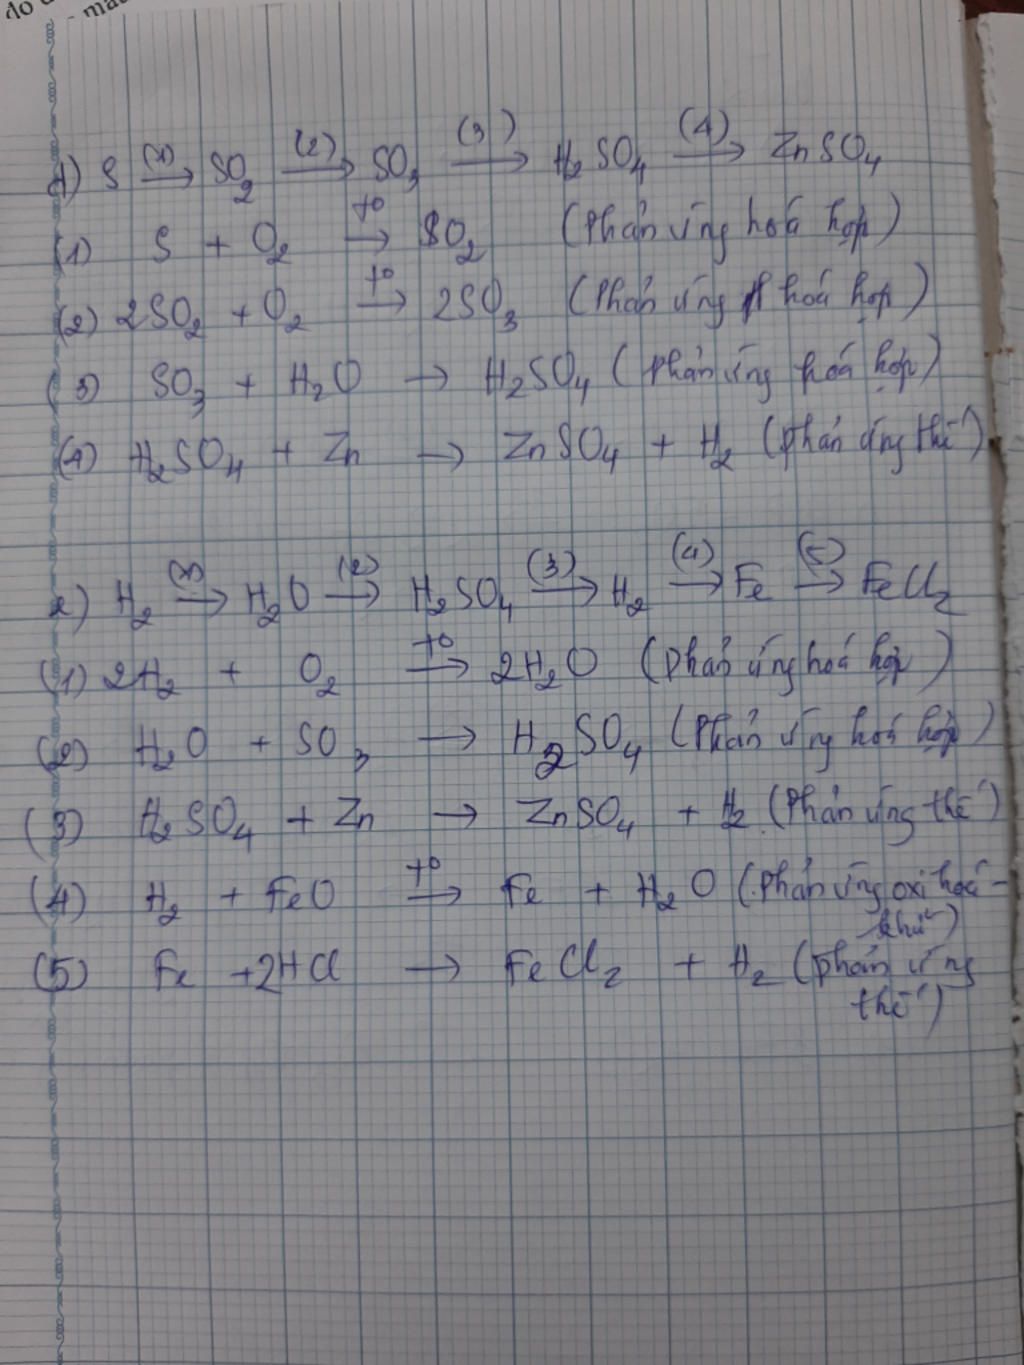 1) S (1)→ SO₂ (2)→ SO₃ (3)→ H₂SO₄ (4)→ ZnSO₄
(1) S + O₂ t⁰→ SO₂ (Phản ứng hoá hợp)
(2) 2SO₂ + O₂ t⁰→ 2SO₃ (Phản ứng hoá hợp)
(3) SO₃ + H₂O → H₂SO₄ (Phản ứng hoá hợp)
(4) H₂SO₄ + Zn → ZnSO₄ + H₂ (phản ứng thế)
2) H₂ (1)→ H₂O (2)→ H₂SO₄ (3)→ H₂ (4)→ Fe (5)→ FeCl₂
(1) 2H₂ + O₂ t⁰→ 2H₂O (phản ứng hoá hợp)
(2) H₂O + SO₃ → H₂SO₄ (Phản ứng hoá hợp)
(3) H₂SO₄ + Zn → ZnSO₄ + H₂ (Phản ứng thế)
(4) H₂ + FeO t⁰→ Fe + H₂O (Phản ứng oxi hoá -
khử)
(5) Fe + 2HCl → FeCl₂ + H₂ (phản ứng
thế)